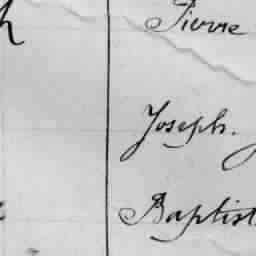 Pierre
Joseph.
Baptist